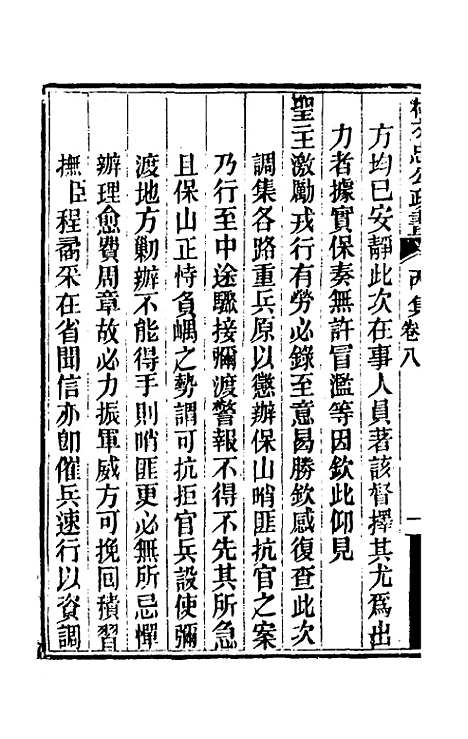 林文忠公政書 丙集卷八 一
方均已安靜此次在事人員著該督擇其尤爲出
力者據實保奏無許冒濫等因欽此仰見
聖主激勵戎行有勞必錄至意曷勝欽感復查此次
調集各路重兵原以懲辦保山哨匪抗官之案
乃行至中途驟接彌渡警報不得不先其所急
且保山正恃負嵎之勢謂可抗拒官兵設使彌
渡地方勦辦不能得手則哨匪更必無所忌憚
辦理愈費周章故必力振軍威方可挽回積習
撫臣程矞采在省聞信亦卽催兵速行以資調